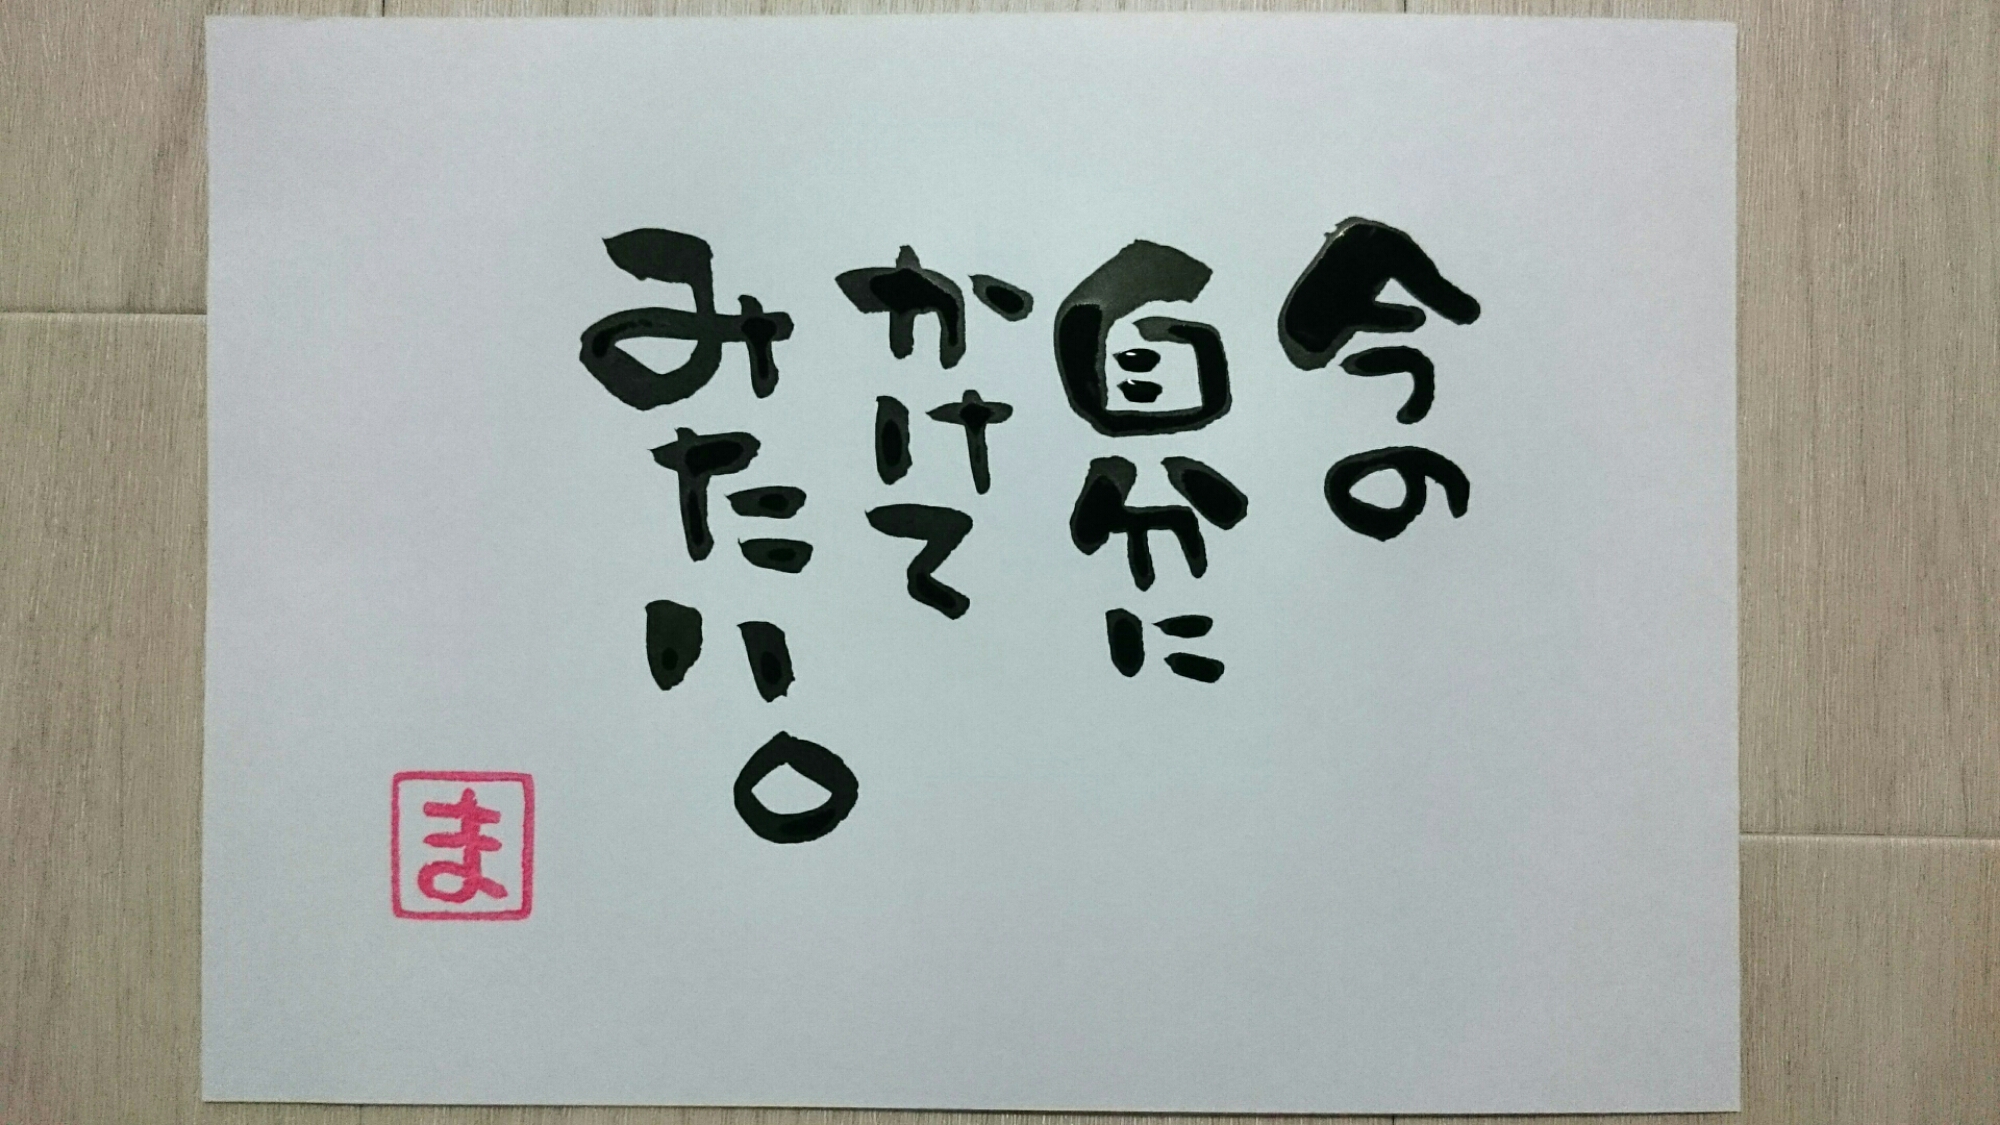 今の
自分に
かけて
みたい。
ま